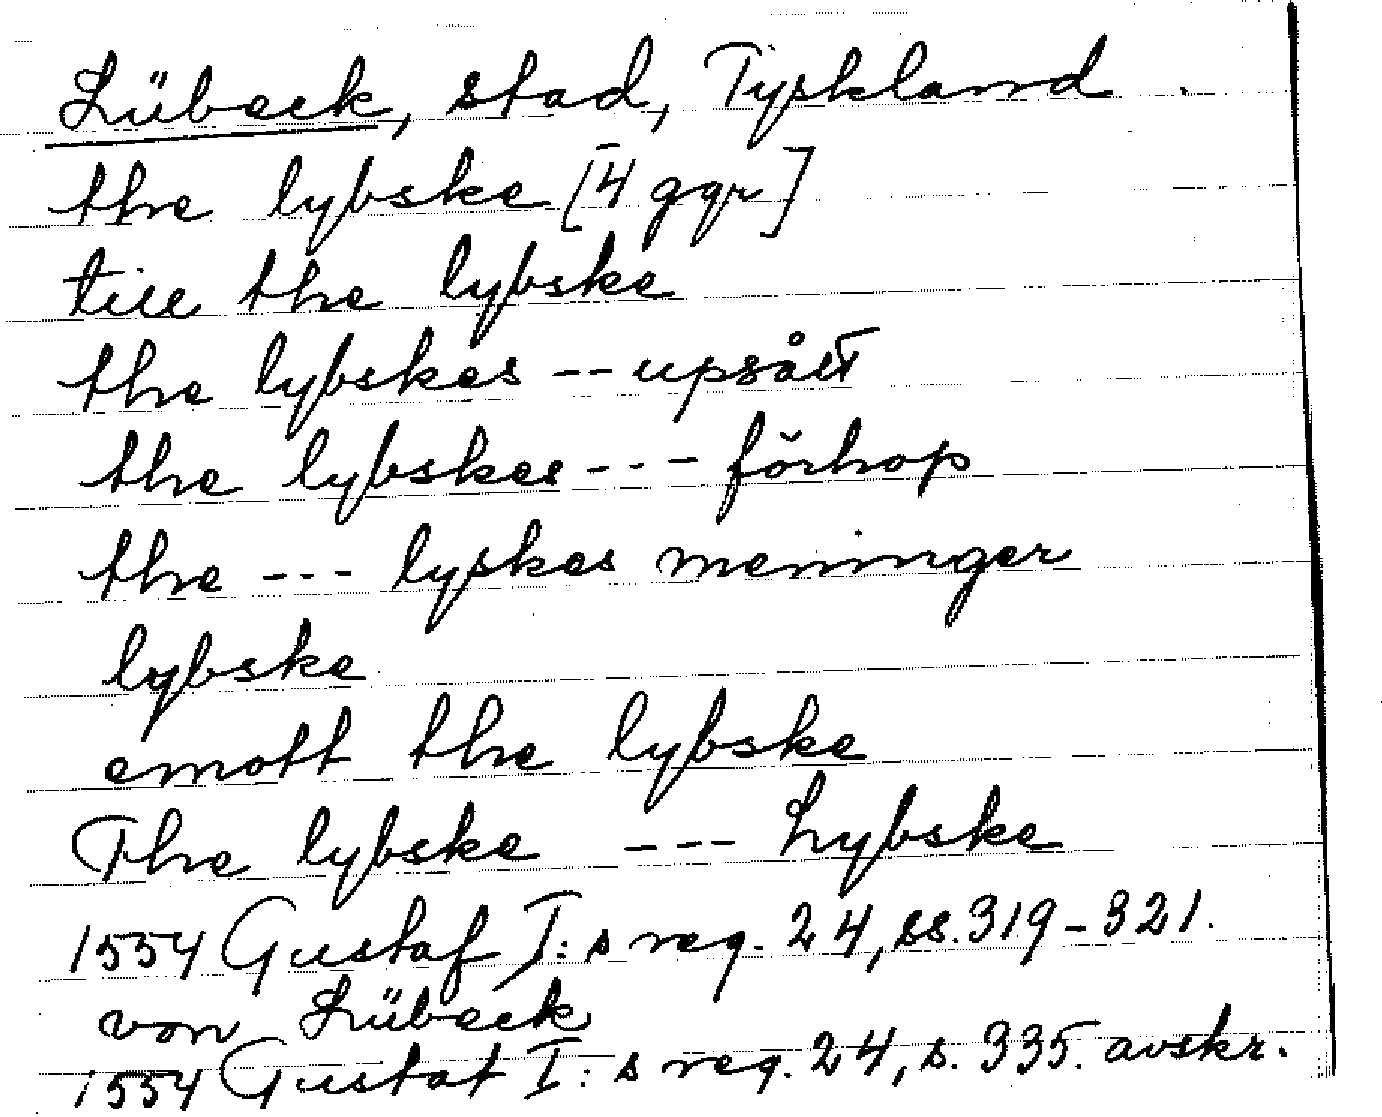 Lübeck, stad, Tyskland.
the lybske [4 ggr]
till the lybske
the lybskes -- upsått
the lybskes --- förhop
the --- lyskes meninger
lybske
emott the lybske
The lybske --- Lybske
1554 Gustaf I:s reg. 24, ss. 319-321.
von Lübeck
1554 Gustaf I:s reg. 24, s. 335. avskr.